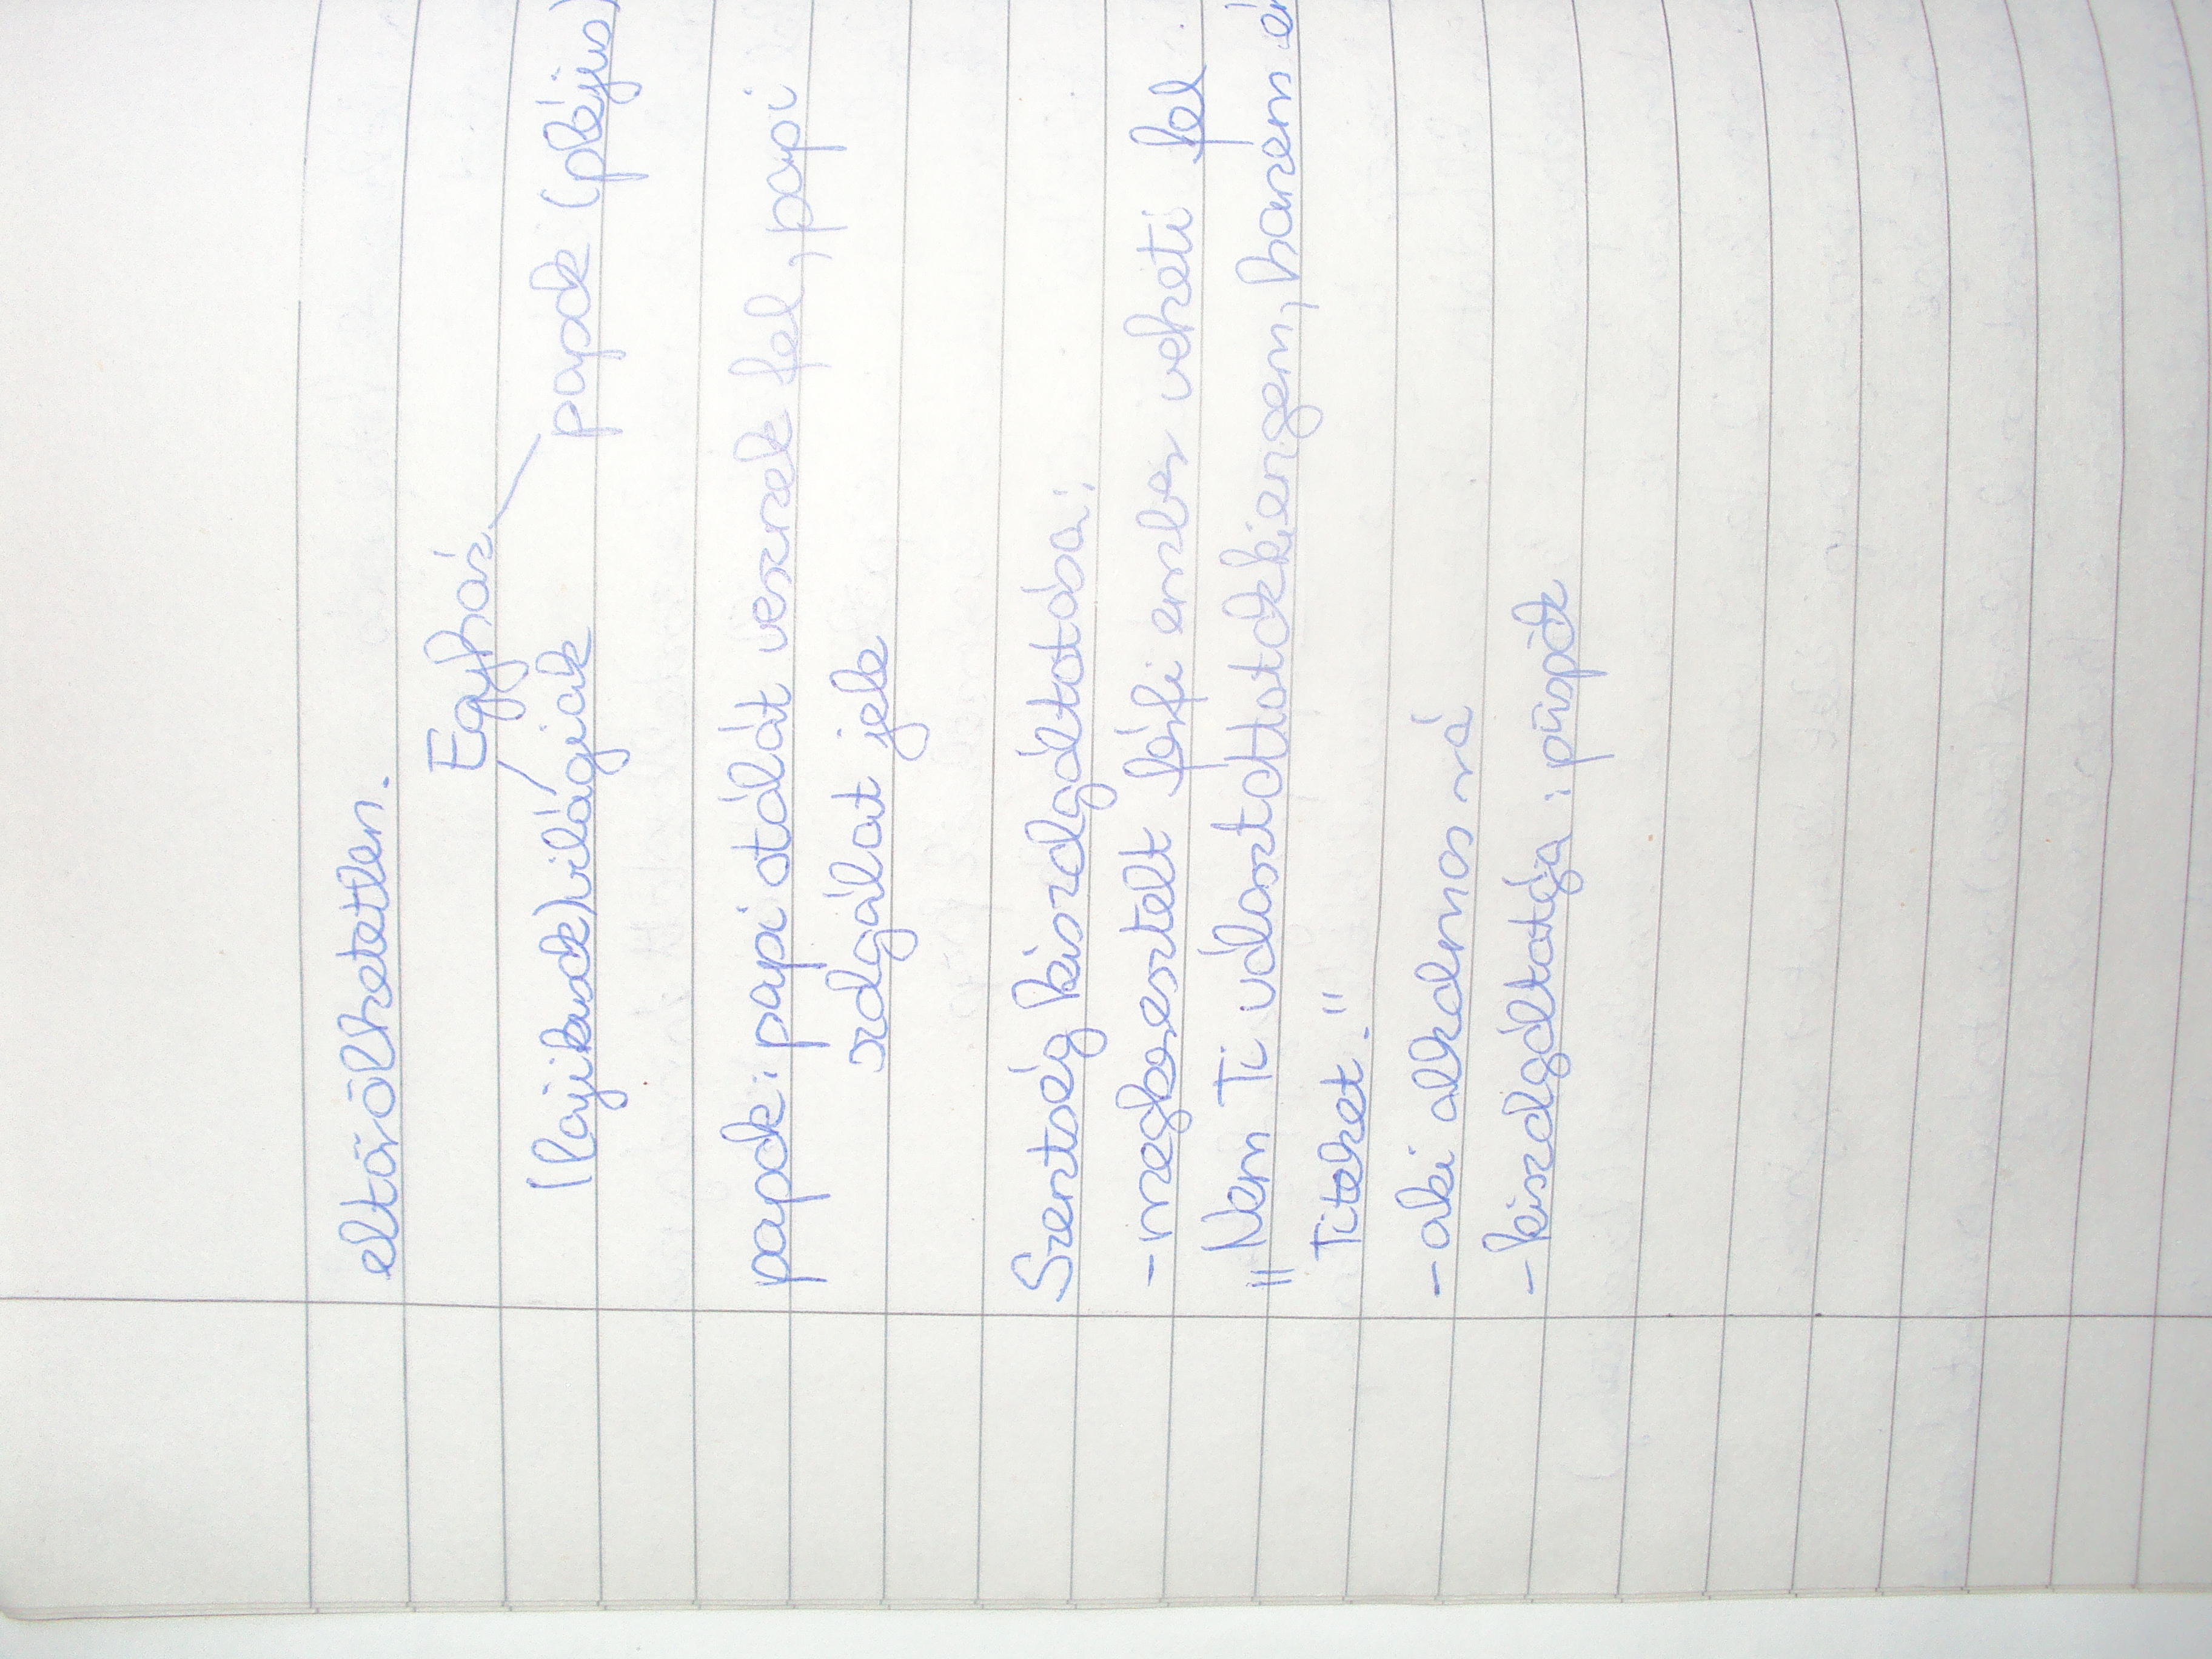 eltörölhetetlen.
Egyház
(lajikusok) világiak papok (pléjus)
papok: papi otálát vesznek fel, papi
szolgálat jele
Szentség kiszolgáltatása:
- megkeresztelt férfi ember veheti fel
"Nem Ti választottatok ki engem, hanem én
Titeket."
- aki alkalmas rá
- kiszolgáltatója: püspök